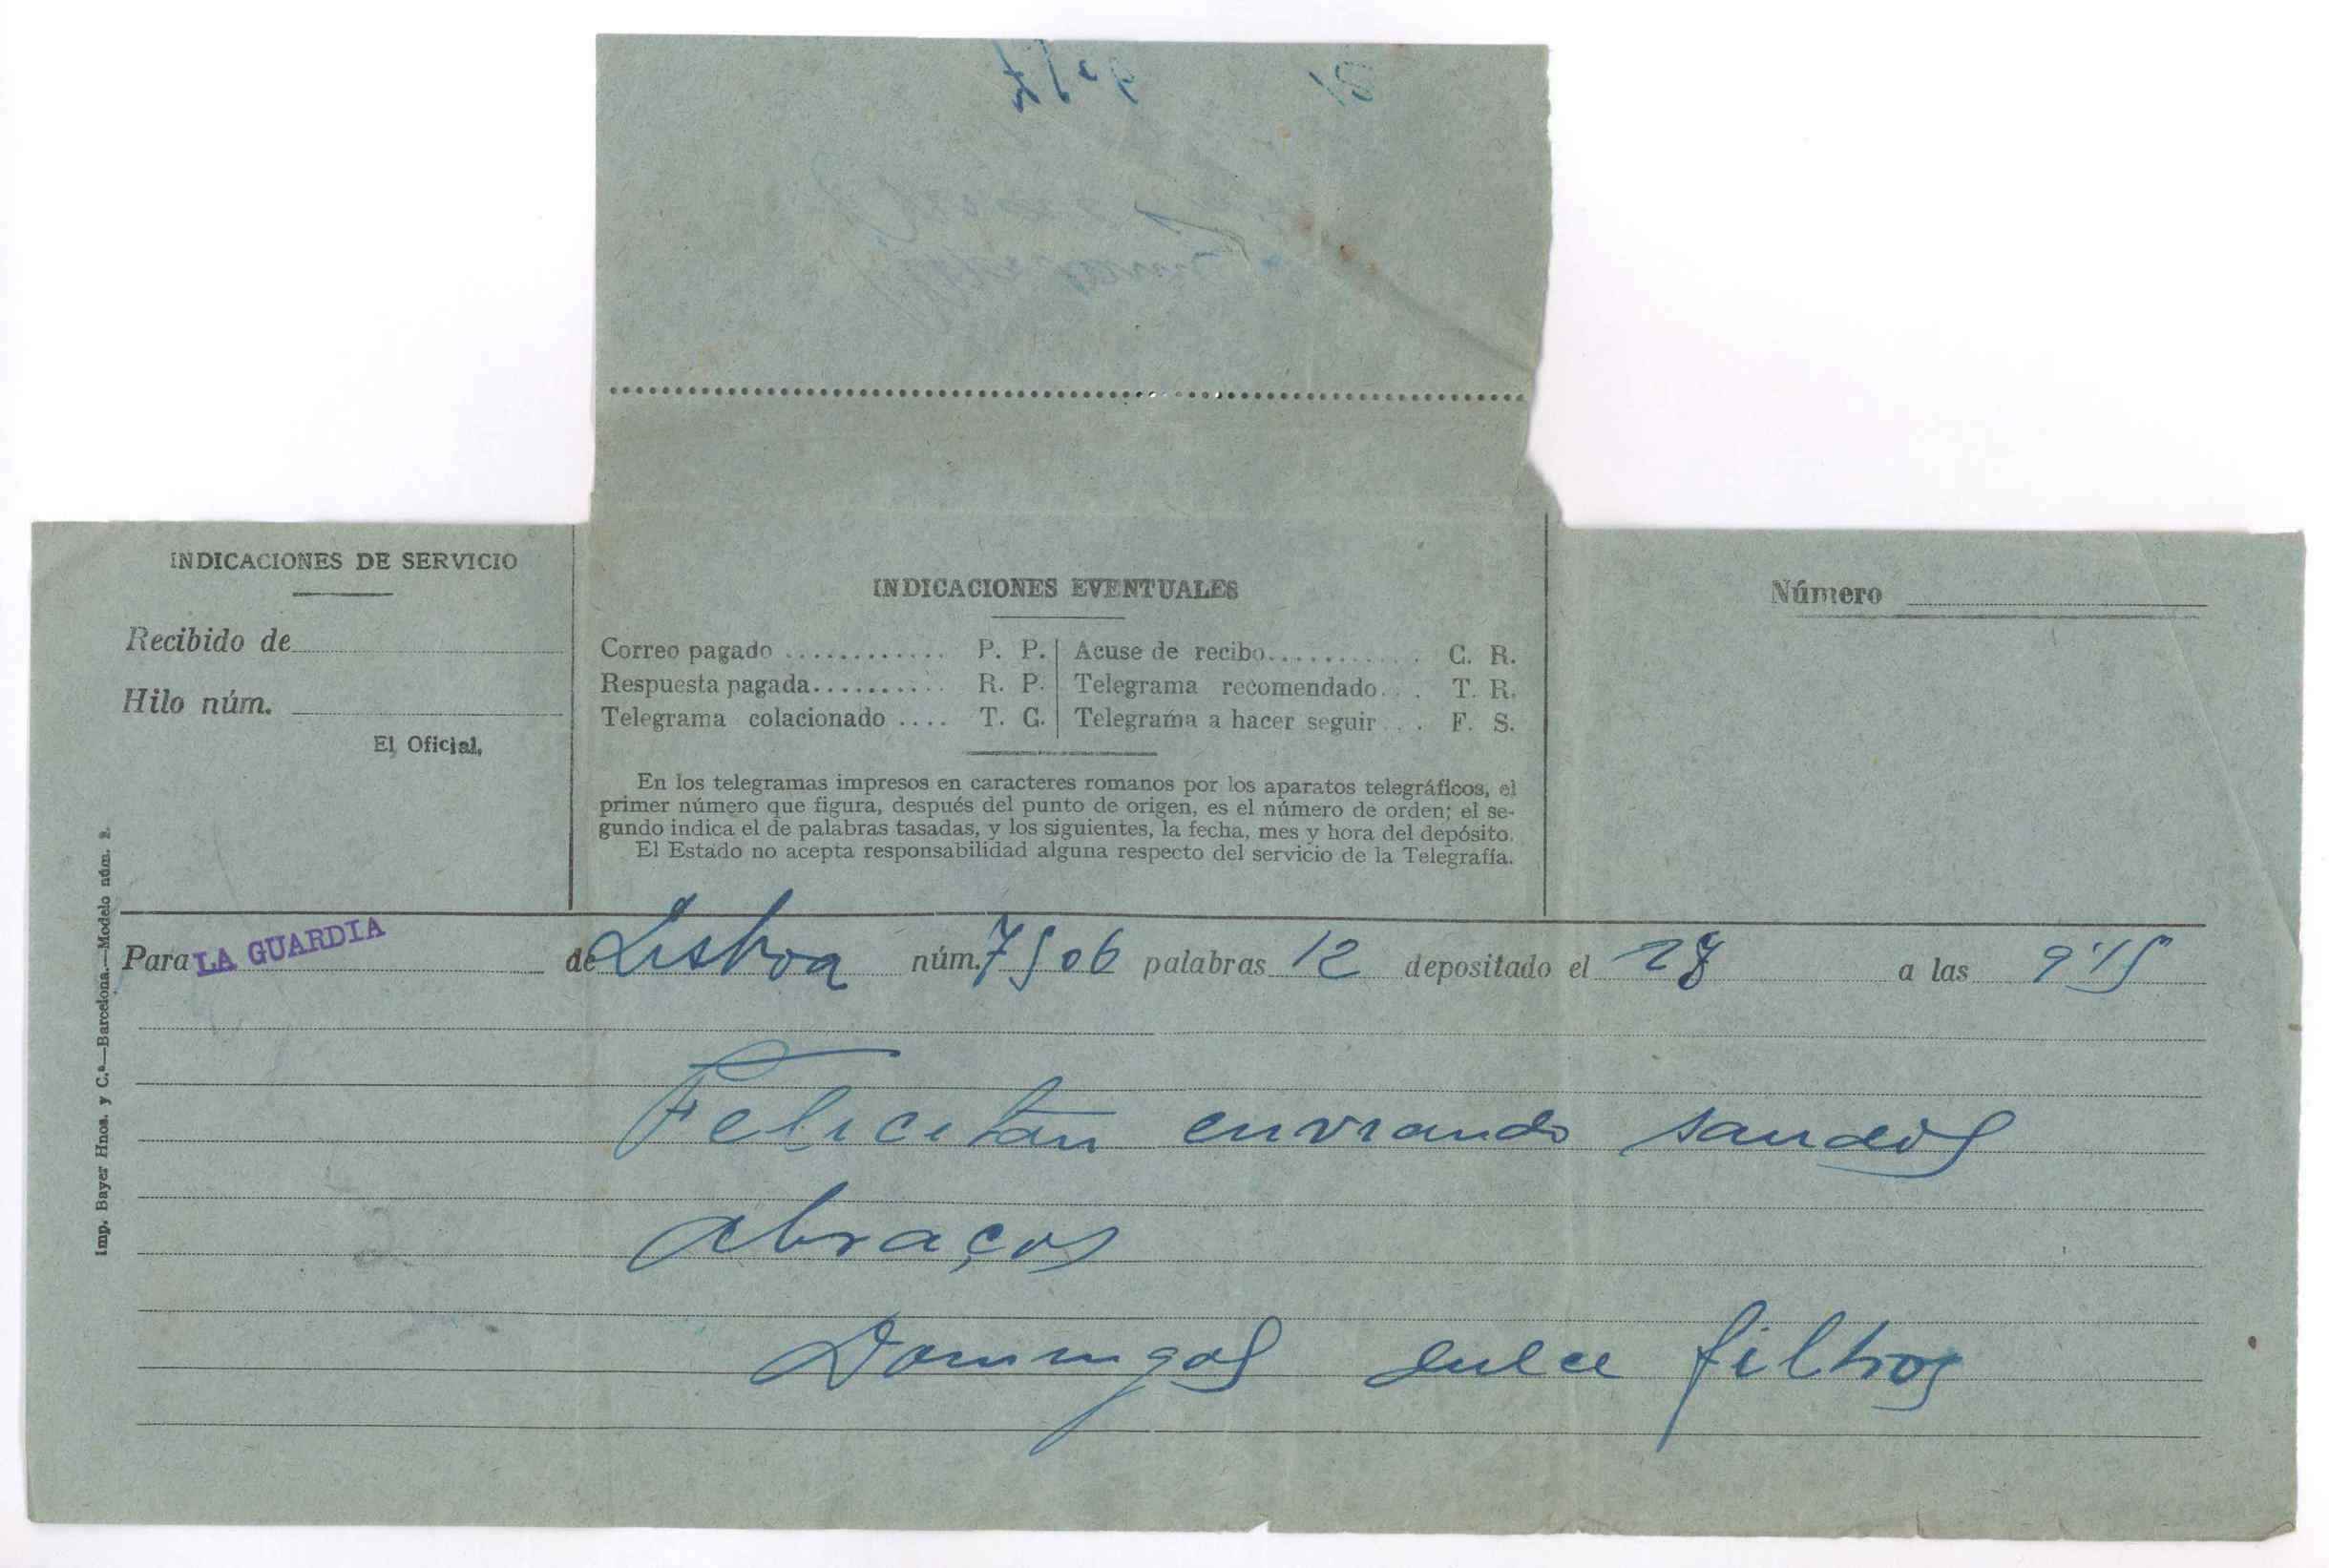 INDICACIONES DE SERVICIO
Recibido de
Hilo núm.
El Oficial,
INDICACIONES EVENTUALES
Correo pagado ............ P. P.
Respuesta pagada.......... R. P.
Telegrama colacionado .... T. C.
Acuse de recibo........... C. R.
Telegrama recomendado... T. R.
Telegrama a hacer seguir... F. S.
En los telegramas impresos en caracteres romanos por los aparatos telegráficos, el
primer número que figura, después del punto de origen, es el número de orden; el se-
gundo indica el de palabras tasadas, y los siguientes, la fecha, mes y hora del depósito.
El Estado no acepta responsabilidad alguna respecto del servicio de la Telegrafía.
Número
Imp. Bayer Hnos. y C.ª—Barcelona.—Modelo núm. 2.
Para LA GUARDIA de Lisboa núm. 7506 palabras 12 depositado el 28 a las 9'15
Felicitan enviando saudos
abraços
Domingos dulce filhos